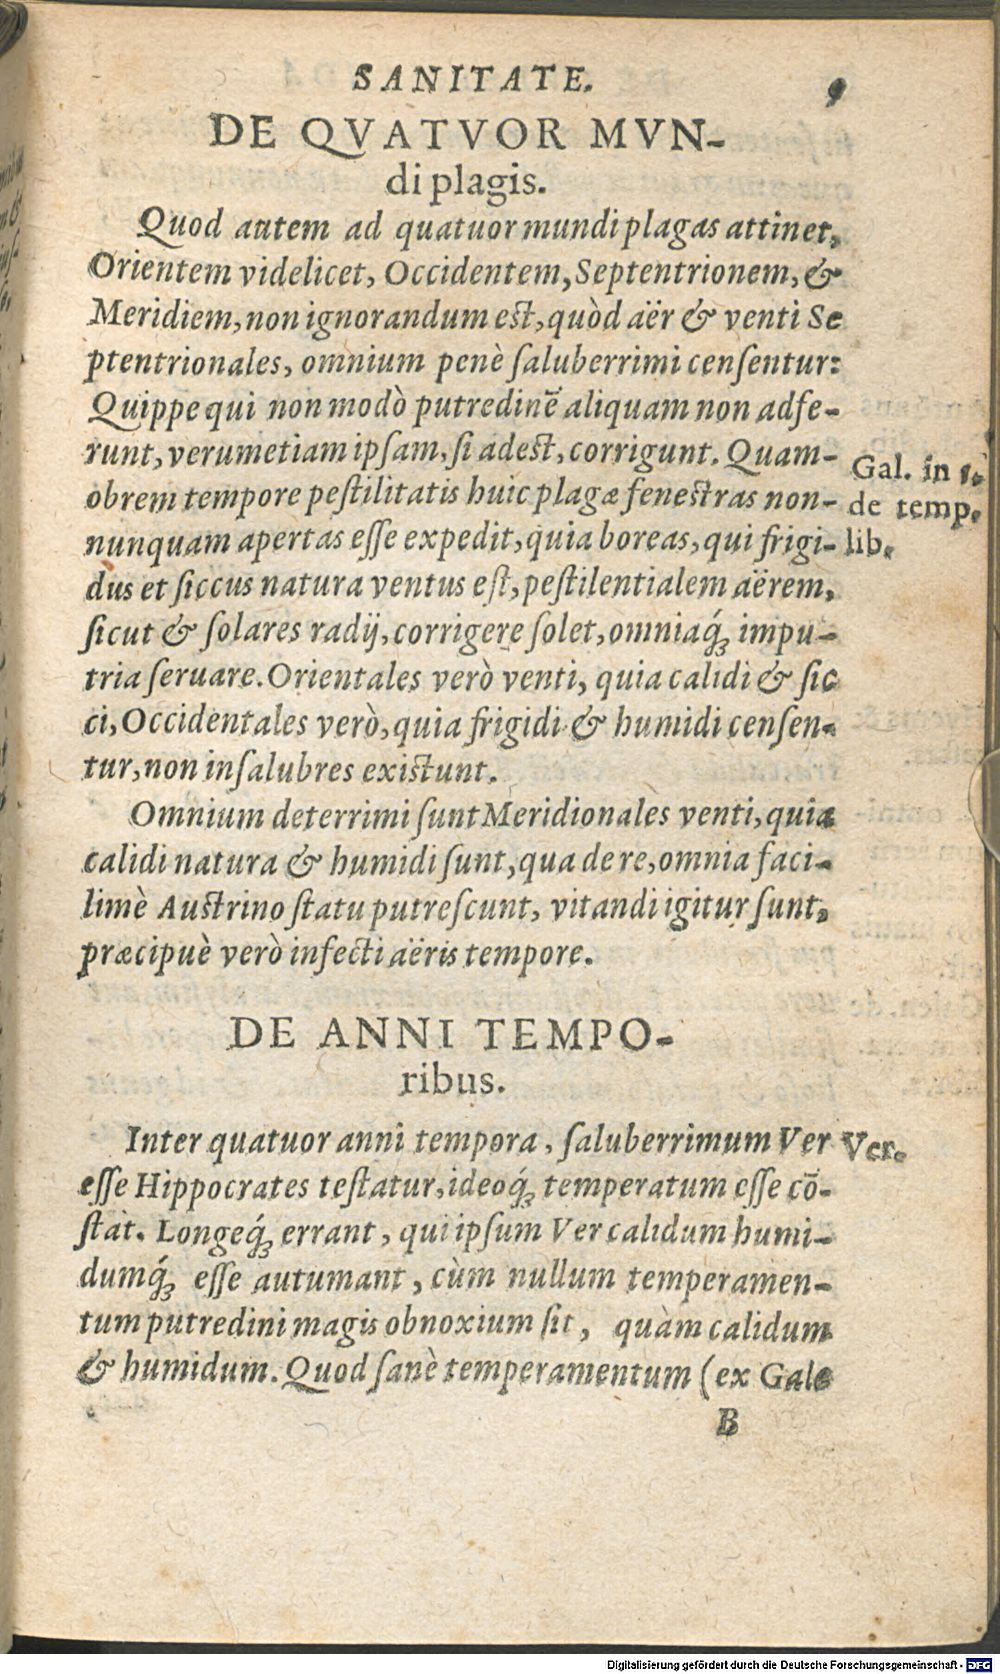 SANITATE. 9
DE QVATVOR MVN-
di plagis.
Quod autem ad quatuor mundi plagas attinet,
Orientem videlicet, Occidentem, Septentrionem, &
Meridiem, non ignorandum est, quòd aër & venti Se
ptentrionales, omnium penè saluberrimi censentur:
Quippe qui non modò putredinē aliquam non adfe-
runt, verumetiam ipsam, si adest, corrigunt. Quam-
obrem tempore pestilitatis huic plagæ fenestras non-
nunquam apertas esse expedit, quia boreas, qui frigi-
dus et siccus natura ventus est, pestilentialem aërem,
sicut & solares radij, corrigere solet, omniaq́; impu-
tria seruare. Orientales verò venti, quia calidi & sic
ci, Occidentales verò, quia frigidi & humidi censen-
tur, non insalubres existunt.
Gal. in 1.
de temp.
lib.
Omnium deterrimi sunt Meridionales venti, quia
calidi natura & humidi sunt, qua de re, omnia faci-
limè Austrino statu putrescunt, vitandi igitur sunt,
præcipuè verò infecti aëris tempore.
DE ANNI TEMPO-
ribus.
Inter quatuor anni tempora, saluberrimum Ver
esse Hippocrates testatur, ideoq́; temperatum esse cō-
stat. Longeq́; errant, qui ipsum Ver calidum humi-
dumq́; esse autumant, cùm nullum temperamen-
tum putredini magis obnoxium sit, quàm calidum
& humidum. Quod sanè temperamentum (ex Gale
Ver.
B
Digitalisierung gefördert durch die Deutsche Forschungsgemeinschaft - DFG